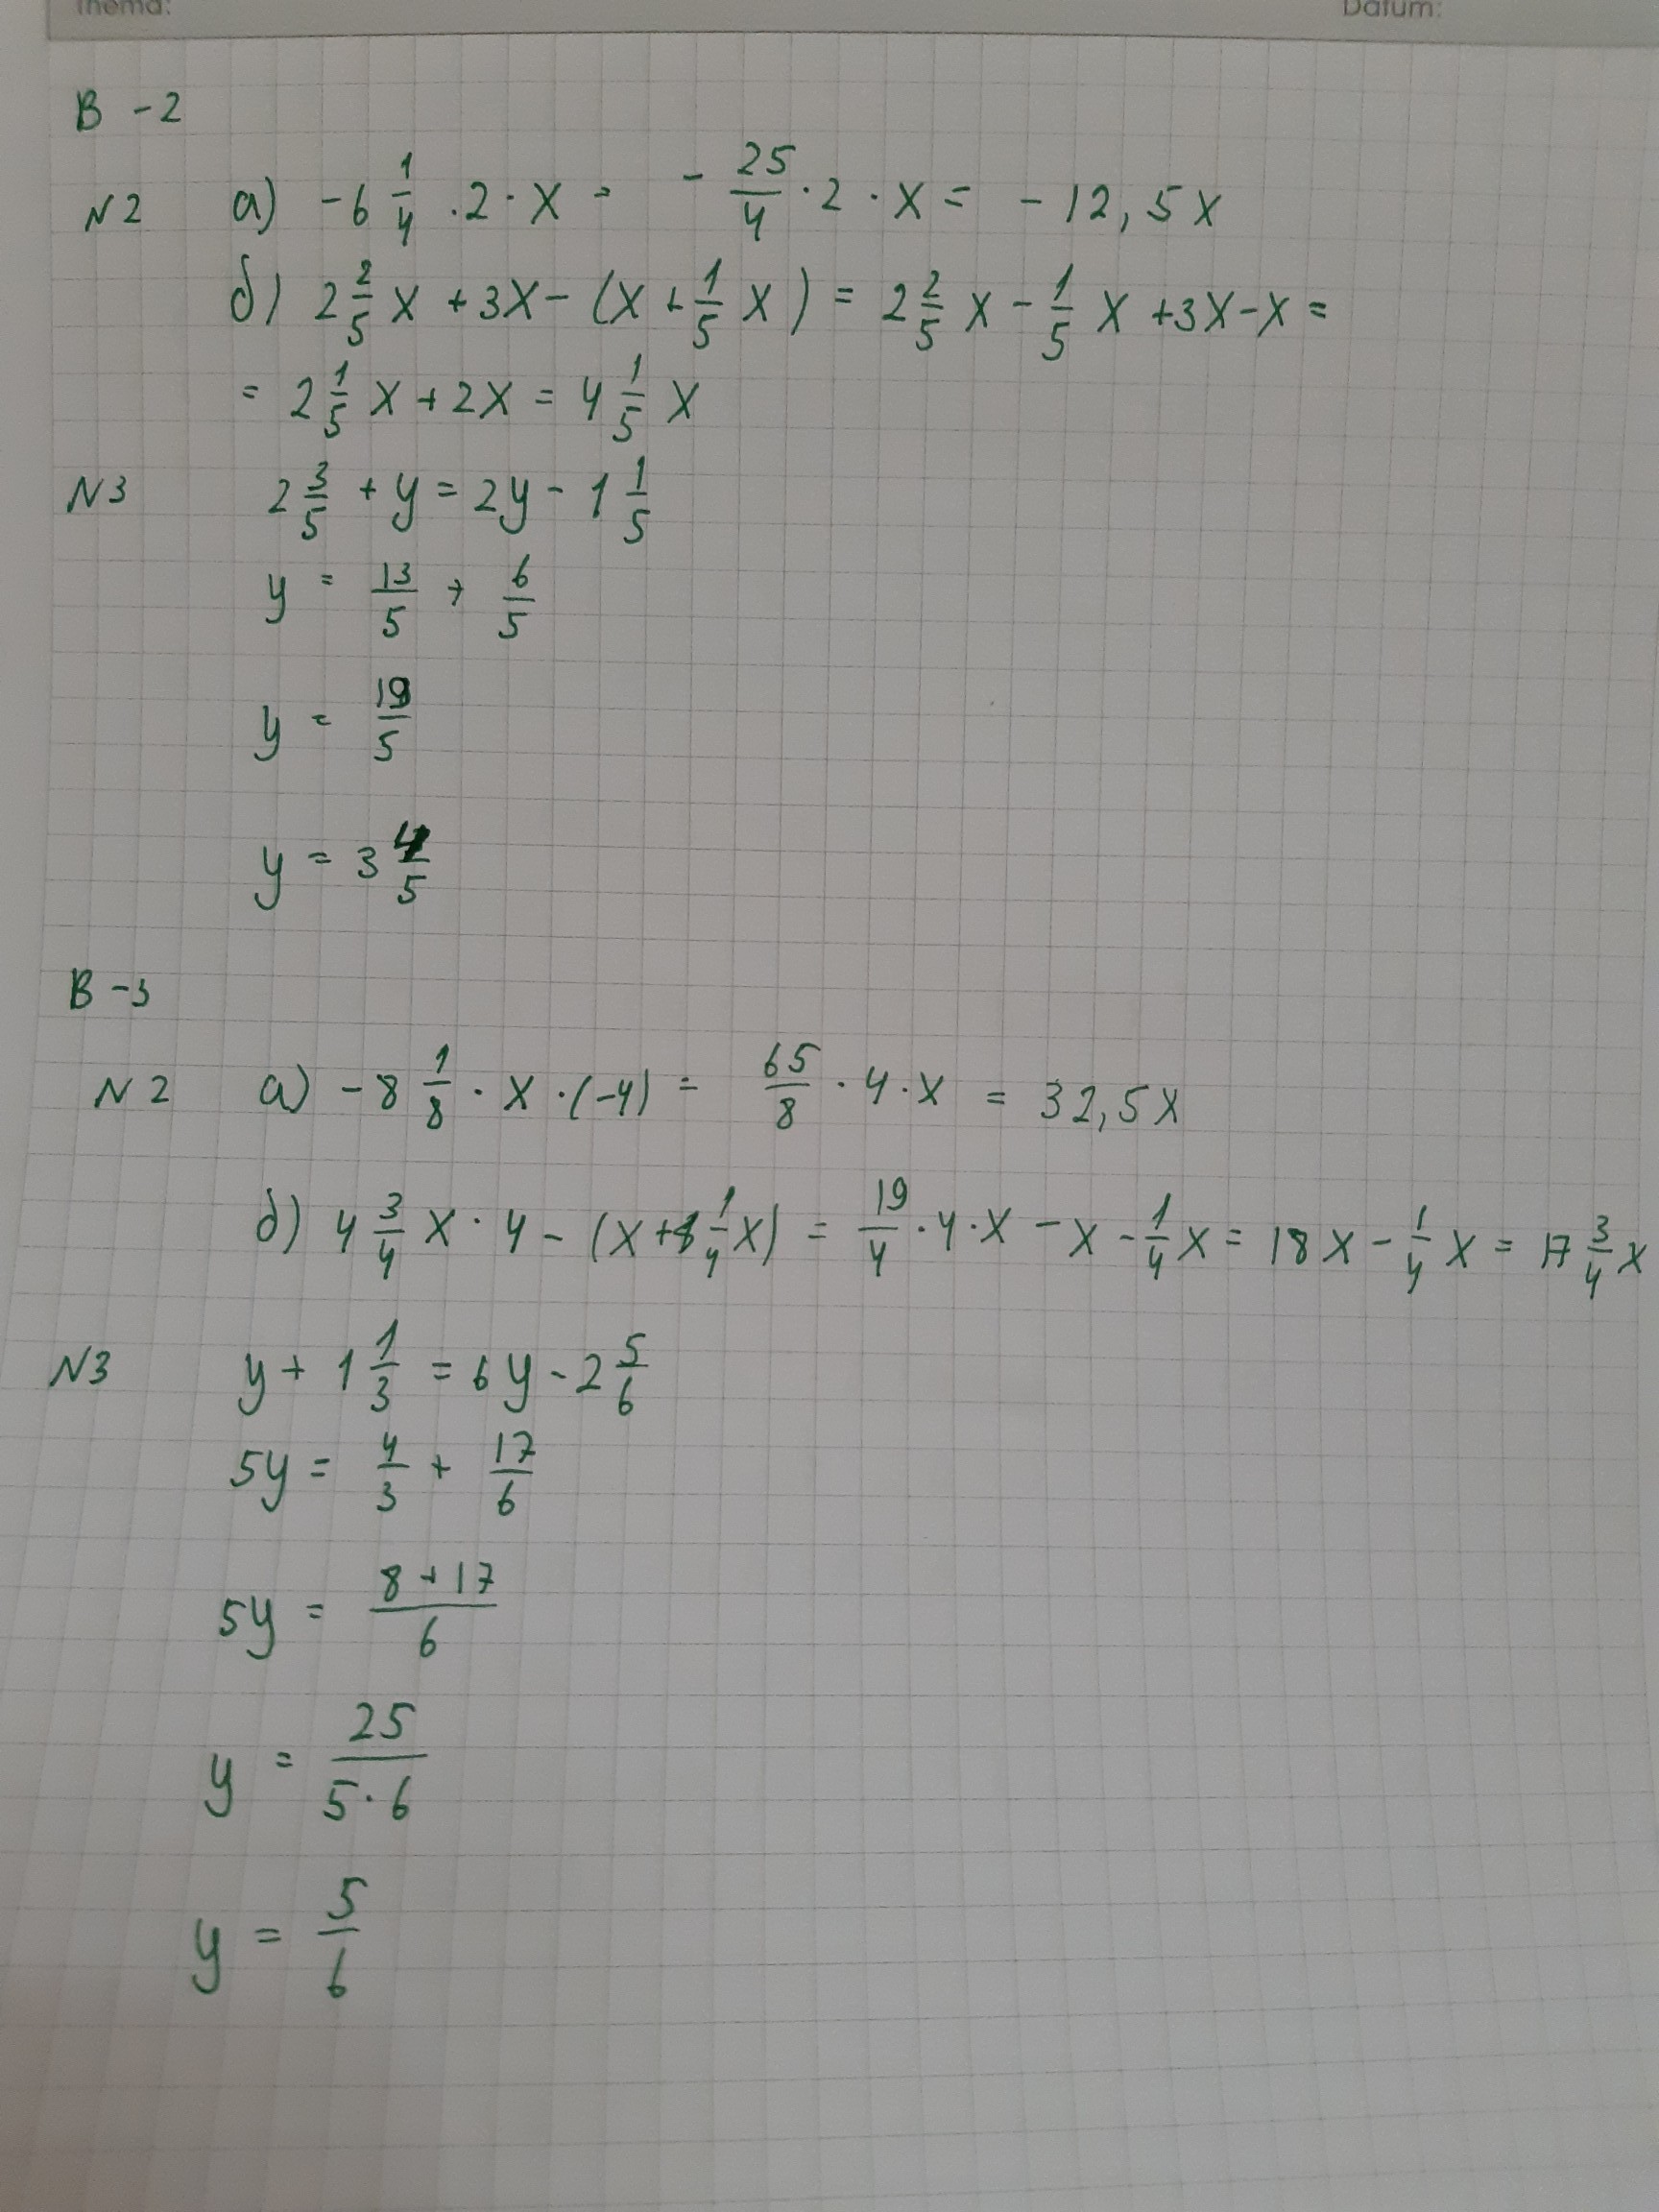 Thema: Datum:
В - 2
N2 а) -6 1/4 · 2 · x = - 25/4 · 2 · x = - 12,5x
б) 2 2/5 x + 3x - (x + 1/5 x) = 2 2/5 x - 1/5 x + 3x - x =
= 2 1/5 x + 2x = 4 1/5 x
N3 2 3/5 + y = 2y - 1 1/5
y = 13/5 + 6/5
y = 19/5
y = 3 4/5
В - 3
N2 а) -8 1/8 · x · (-4) = 65/8 · 4 · x = 32,5x
б) 4 3/4 x · 4 - (x + 1/4 x) = 19/4 · 4 · x - x - 1/4 x = 18x - 1/4 x = 17 3/4 x
N3 y + 1 1/3 = 6y - 2 5/6
5y = 4/3 + 17/6
5y = 8 + 17/6
y = 25/5·6
y = 5/6